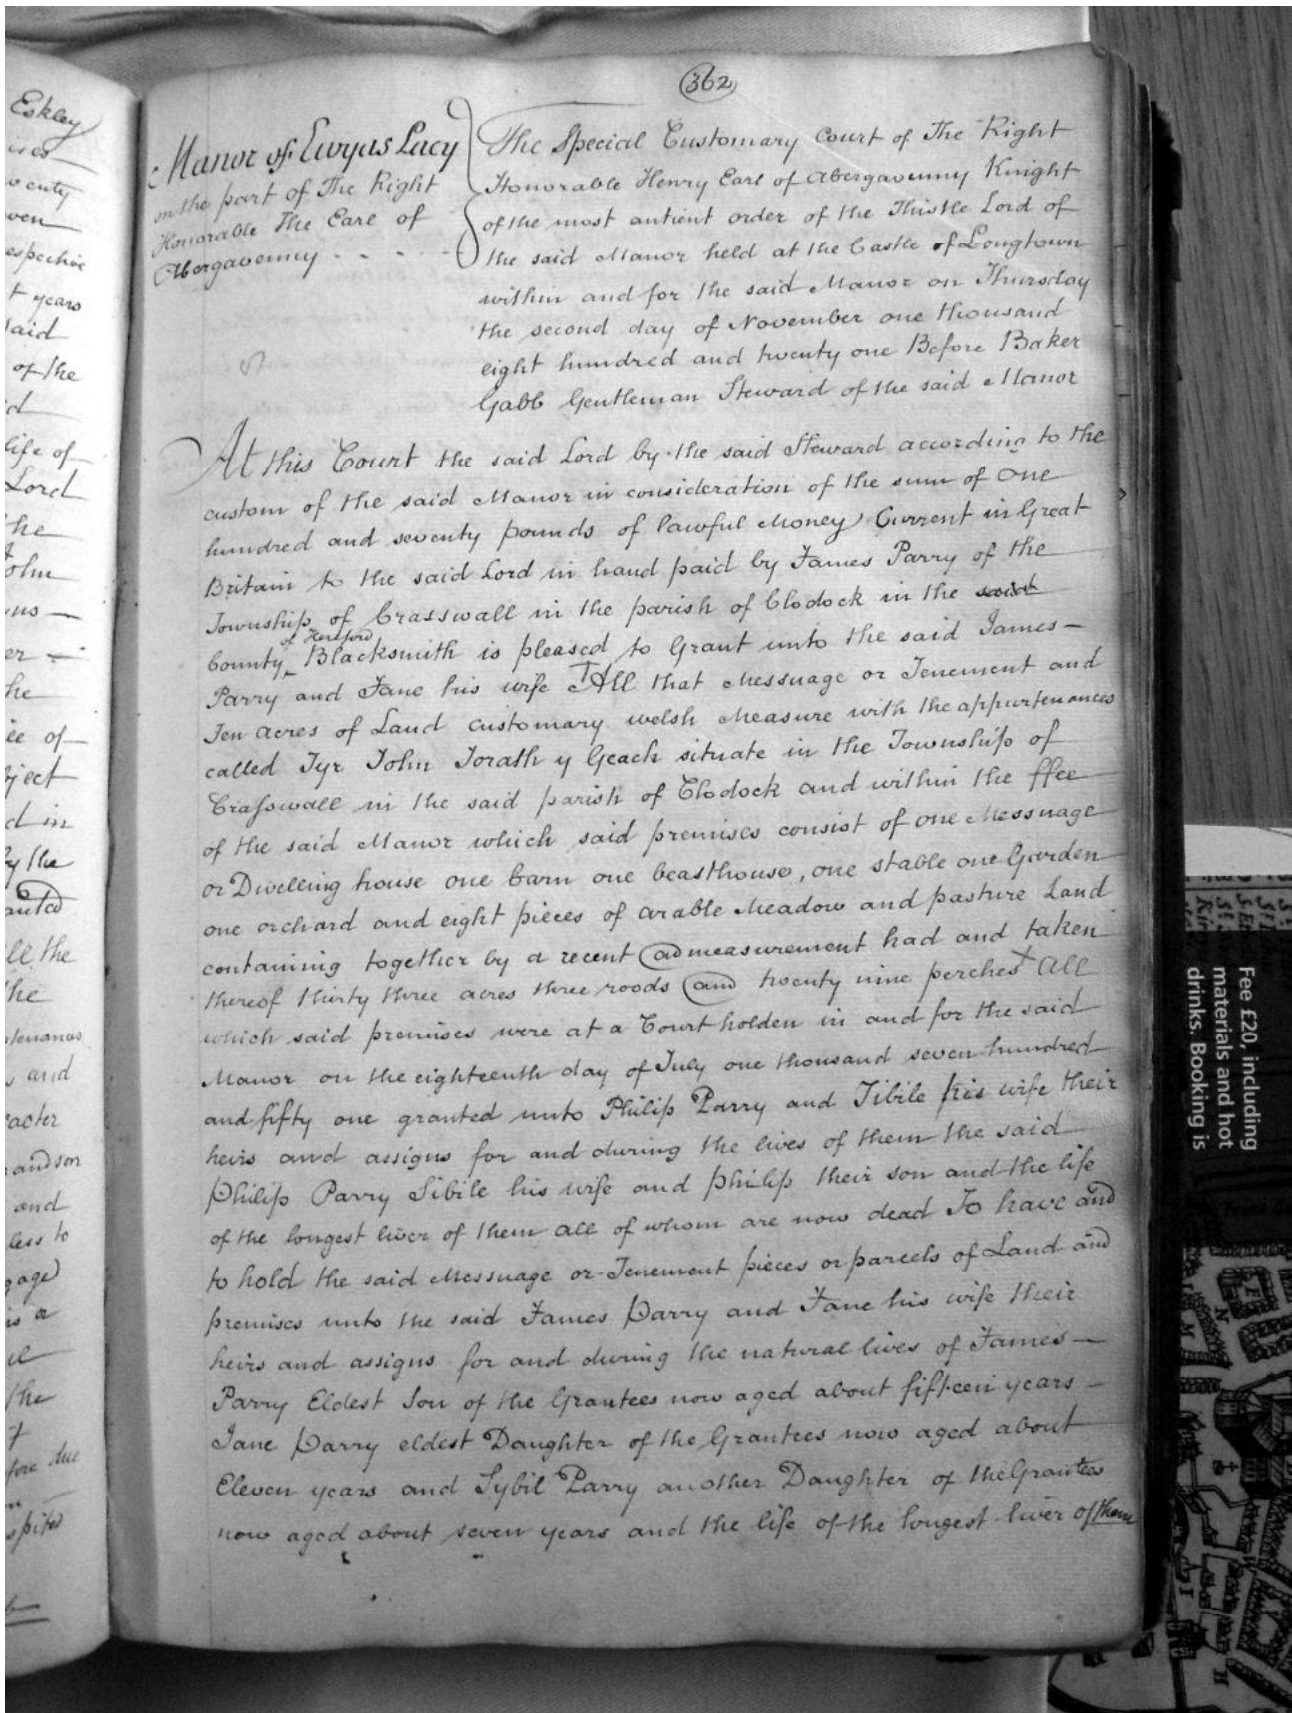 362
Manor of Ewyas Lacy
on the part of The Right
Honorable The Earl of
Abergavenny - - - -
The Special Customary Court of The Right
Honorable Henry Earl of Abergavenny Knight
of the most antient order of the Thistle Lord of
the said Manor held at the Castle of Longtown
within and for the said Manor on Thursday
the second day of November one thousand
eight hundred and twenty one Before Baker
Gabb Gentleman Steward of the said Manor
At this Court the said Lord by the said Steward according to the
custom of the said Manor in consideration of the sum of One
hundred and seventy pounds of lawful Money Current in Great
Britain to the said Lord in hand paid by James Parry of the
Township of Crasswall in the parish of Clodock in the said
County of Hereford Blacksmith is pleased to Grant unto the said James
Parry and Jane his wife All that Messuage or Tenement and
Ten acres of Land customary welsh Measure with the appurtenances
called Tyr John Torath y Geach situate in the Township of
Crasswall in the said parish of Clodock and within the ffee
of the said Manor which said premises consist of one Messuage
or Dwelling house one barn one beasthouse, one stable one Garden
one orchard and eight pieces of arable Meadow and pasture Land
containing together by a recent admeasurement had and taken
thereof thirty three acres three roods and twenty nine perches All
which said premises were at a Court holden in and for the said
Manor on the eighteenth day of July one thousand seven hundred
and fifty one granted unto Philip Parry and Sibile his wife their
heirs and assigns for and during the lives of them the said
Philip Parry Sibile his wife and philip their son and the life
of the longest liver of them all of whom are now dead To have and
to hold the said Messuage or Tenement pieces or parcels of Land and
premises unto the said James Parry and Jane his wife their
heirs and assigns for and during the natural lives of James
Parry Eldest Son of the Grantees now aged about fifteen years
Jane Parry eldest Daughter of the Grantees now aged about
Eleven years and Sybil Parry another Daughter of the Grantees
now aged about seven years and the life of the longest liver of them
Eskley
espective
t years
said
of the
life of
Lord
the
John
he
ee of
ject
d in
by the
all the
the
and
and son
and
less to
is a
the
fore due
Fee £20, including
materials and hot
drinks. Booking is